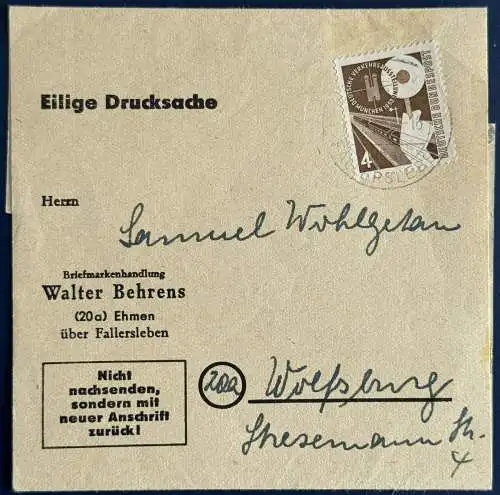 Eilige Drucksache
DEUTSCHE BUNDESPOST
DEUTSCHE VERKEHRSAUSSTELLUNG MÜNCHEN 1953
4
Herrn
Samuel Wohlgetan
Briefmarkenhandlung
Walter Behrens
(20a) Ehmen
über Fallersleben
Nicht
nachsenden,
sondern mit
neuer Anschrift
zurück!
20a Wolfsburg
Stresemann Str.
4